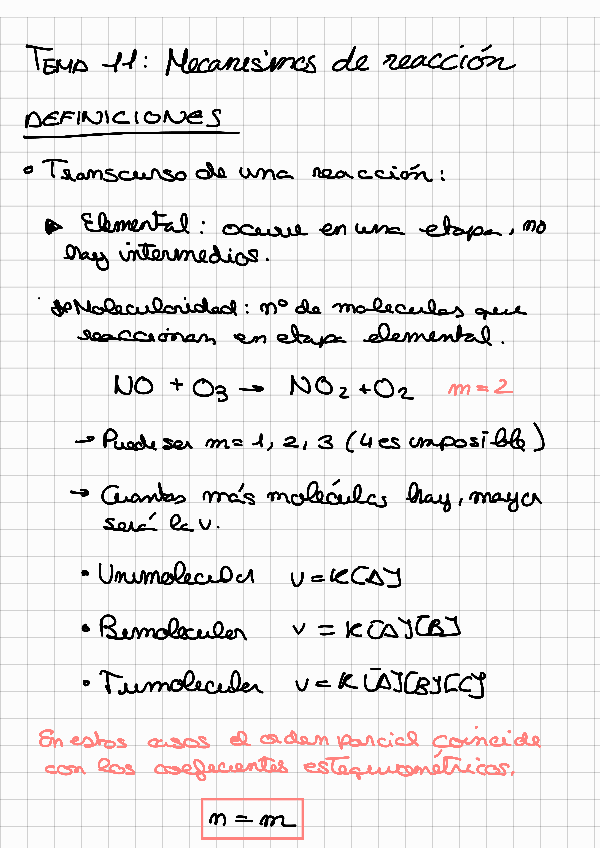 TEMA 11: Mecanismos de reacción
DEFINICIONES
• Transcurso de una reacción:
▶ Elemental: ocurre en una etapa, no
hay intermedios.
▶ Molecularidad: nº de moleculas que
reaccionan en etapa elemental.
NO + O3 → NO2 + O2 m = 2
→ Puede ser m = 1, 2, 3 (4 es imposible)
→ Cuantas más moléculas hay, mayor
será la v.
• Unimolecular v = K[A]
• Bimolecular v = K[A][B]
• Trimolecular v = K[A][B][C]
En estos casos el orden parcial coincide
con los coeficientes estequiométricos.
n = m